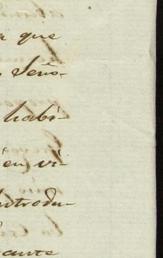 que
Seño-
habi-
en vi-
introdu-
ante